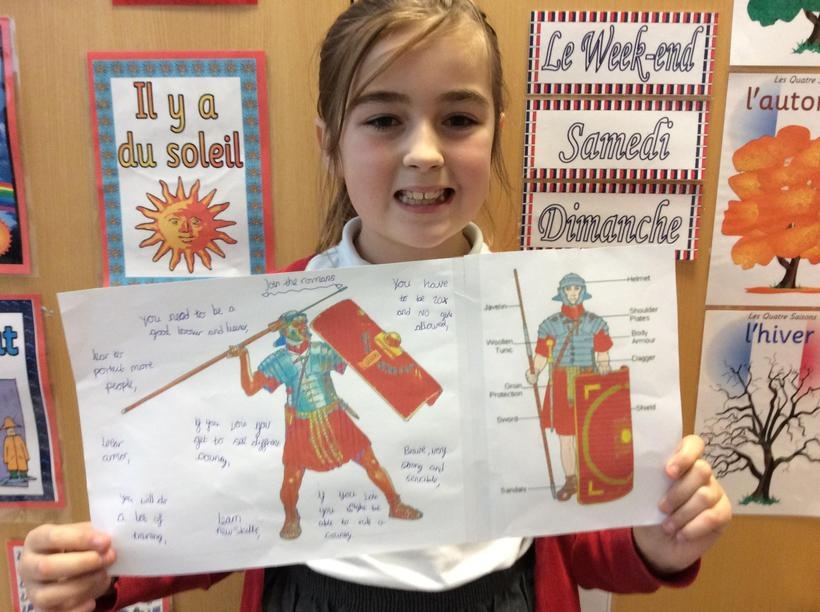 Il y a
du soleil
Le Week-end
Samedi
Dimanche
Les Quatre
l'auto
Les Quatre Saisons
l'hiver
Join the romans
you need to be a
good
You have
to be
and NO
allowed,
more
people,
wear
armor,
If you
you
get to
Brave, very
strong and
sensible,
You will do
a lot of
training,
learn
new skills,
If you
you might be
able to
a
Helmet
Javelin
Shoulder
Plates
Woollen
Tunic
Body
Armour
Dagger
Groin
Protection
Shield
Sword
Sandals